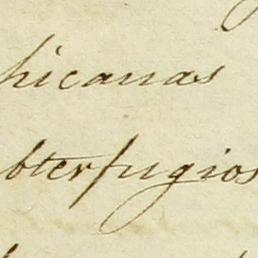 hicanas
bterfugios